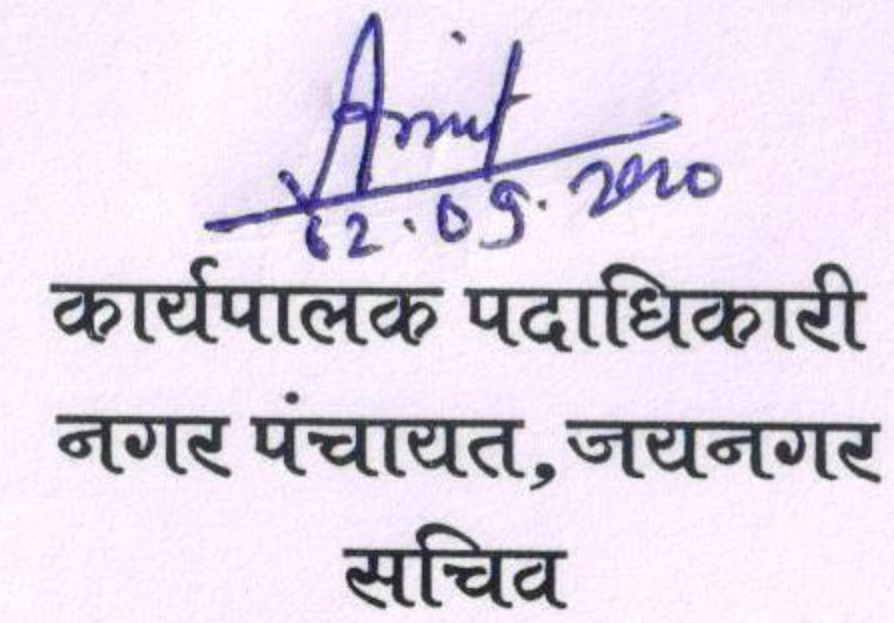 Amit
12.09.2020
कार्यपालक पदाधिकारी
नगर पंचायत, जयनगर
सचिव